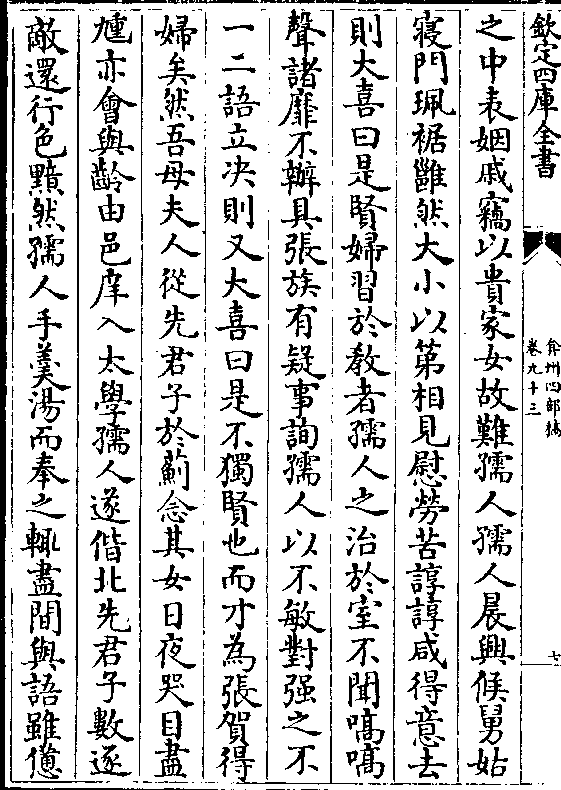 欽定四庫全書
弇州四部稿
卷九十三
七
之中表姻戚竊以貴家女故難孺人孺人晨興候舅姑
寢門珮裾雝然大小以第相見慰勞苦諄諄咸得意去
則大喜曰是賢婦習於教者孺人之治於室不聞嗃嗃
聲諸靡不辦具張族有疑事詢孺人以不敏對强之不
一二語立決則又大喜曰是不獨賢也而才為張賀得
婦矣然吾母夫人從先君子於薊念其女日夜哭目盡
尰亦會與齡由邑庠入太學孺人遂偕北先君子數逐
敵還行色黯然孺人手羹湯而奉之輒盡間與語雖憊